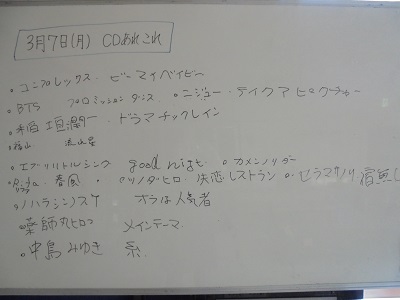 3月7日(月) CDあれこれ
。コンプレックス・ビーマイベイビー
。BTS プロミッションダンス 。ニジュー・テイクアピクチャー
。稲垣潤一・ドラマチックレイン
。福山 流山星
。エブリリトルシング good night 。カメンライダー
。春風 。 ノダヒロ 失恋レストラン 。セラマサノリ 宿無し
。ノハラシンノスケ オラは人気者
。薬師丸ヒロコ メインテーマ
。中島みゆき 糸